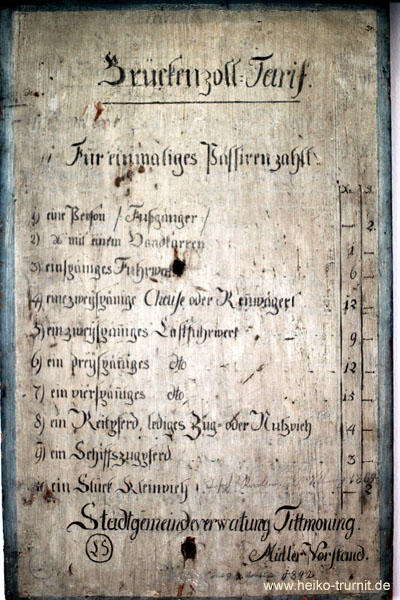 Brückenzoll-Tarif.
Für einmaliges Passiren zahlt:
Xr. d.
1) eine Person /: Fußgänger :/ 2
2) dto mit einem Handkarren 1
3) einspäniges Fuhrwerk 6
4) eine zweyspänige Chaise oder Rennwägerl 12
5) ein zweyspäniges Lastfuhrwerk 9
6) ein dreyspäniges dto 12
7) ein vierspäniges dto 15
8) ein Reitpferd, lediges Zug- oder Nutzvieh 4
9) ein Schiffszugpferd 3
ein Stück Kleinvieh 2
Stadtgemeindeverwaltung Tittmoning.
LS Müller Vorstand.
www.heiko-trurnit.de